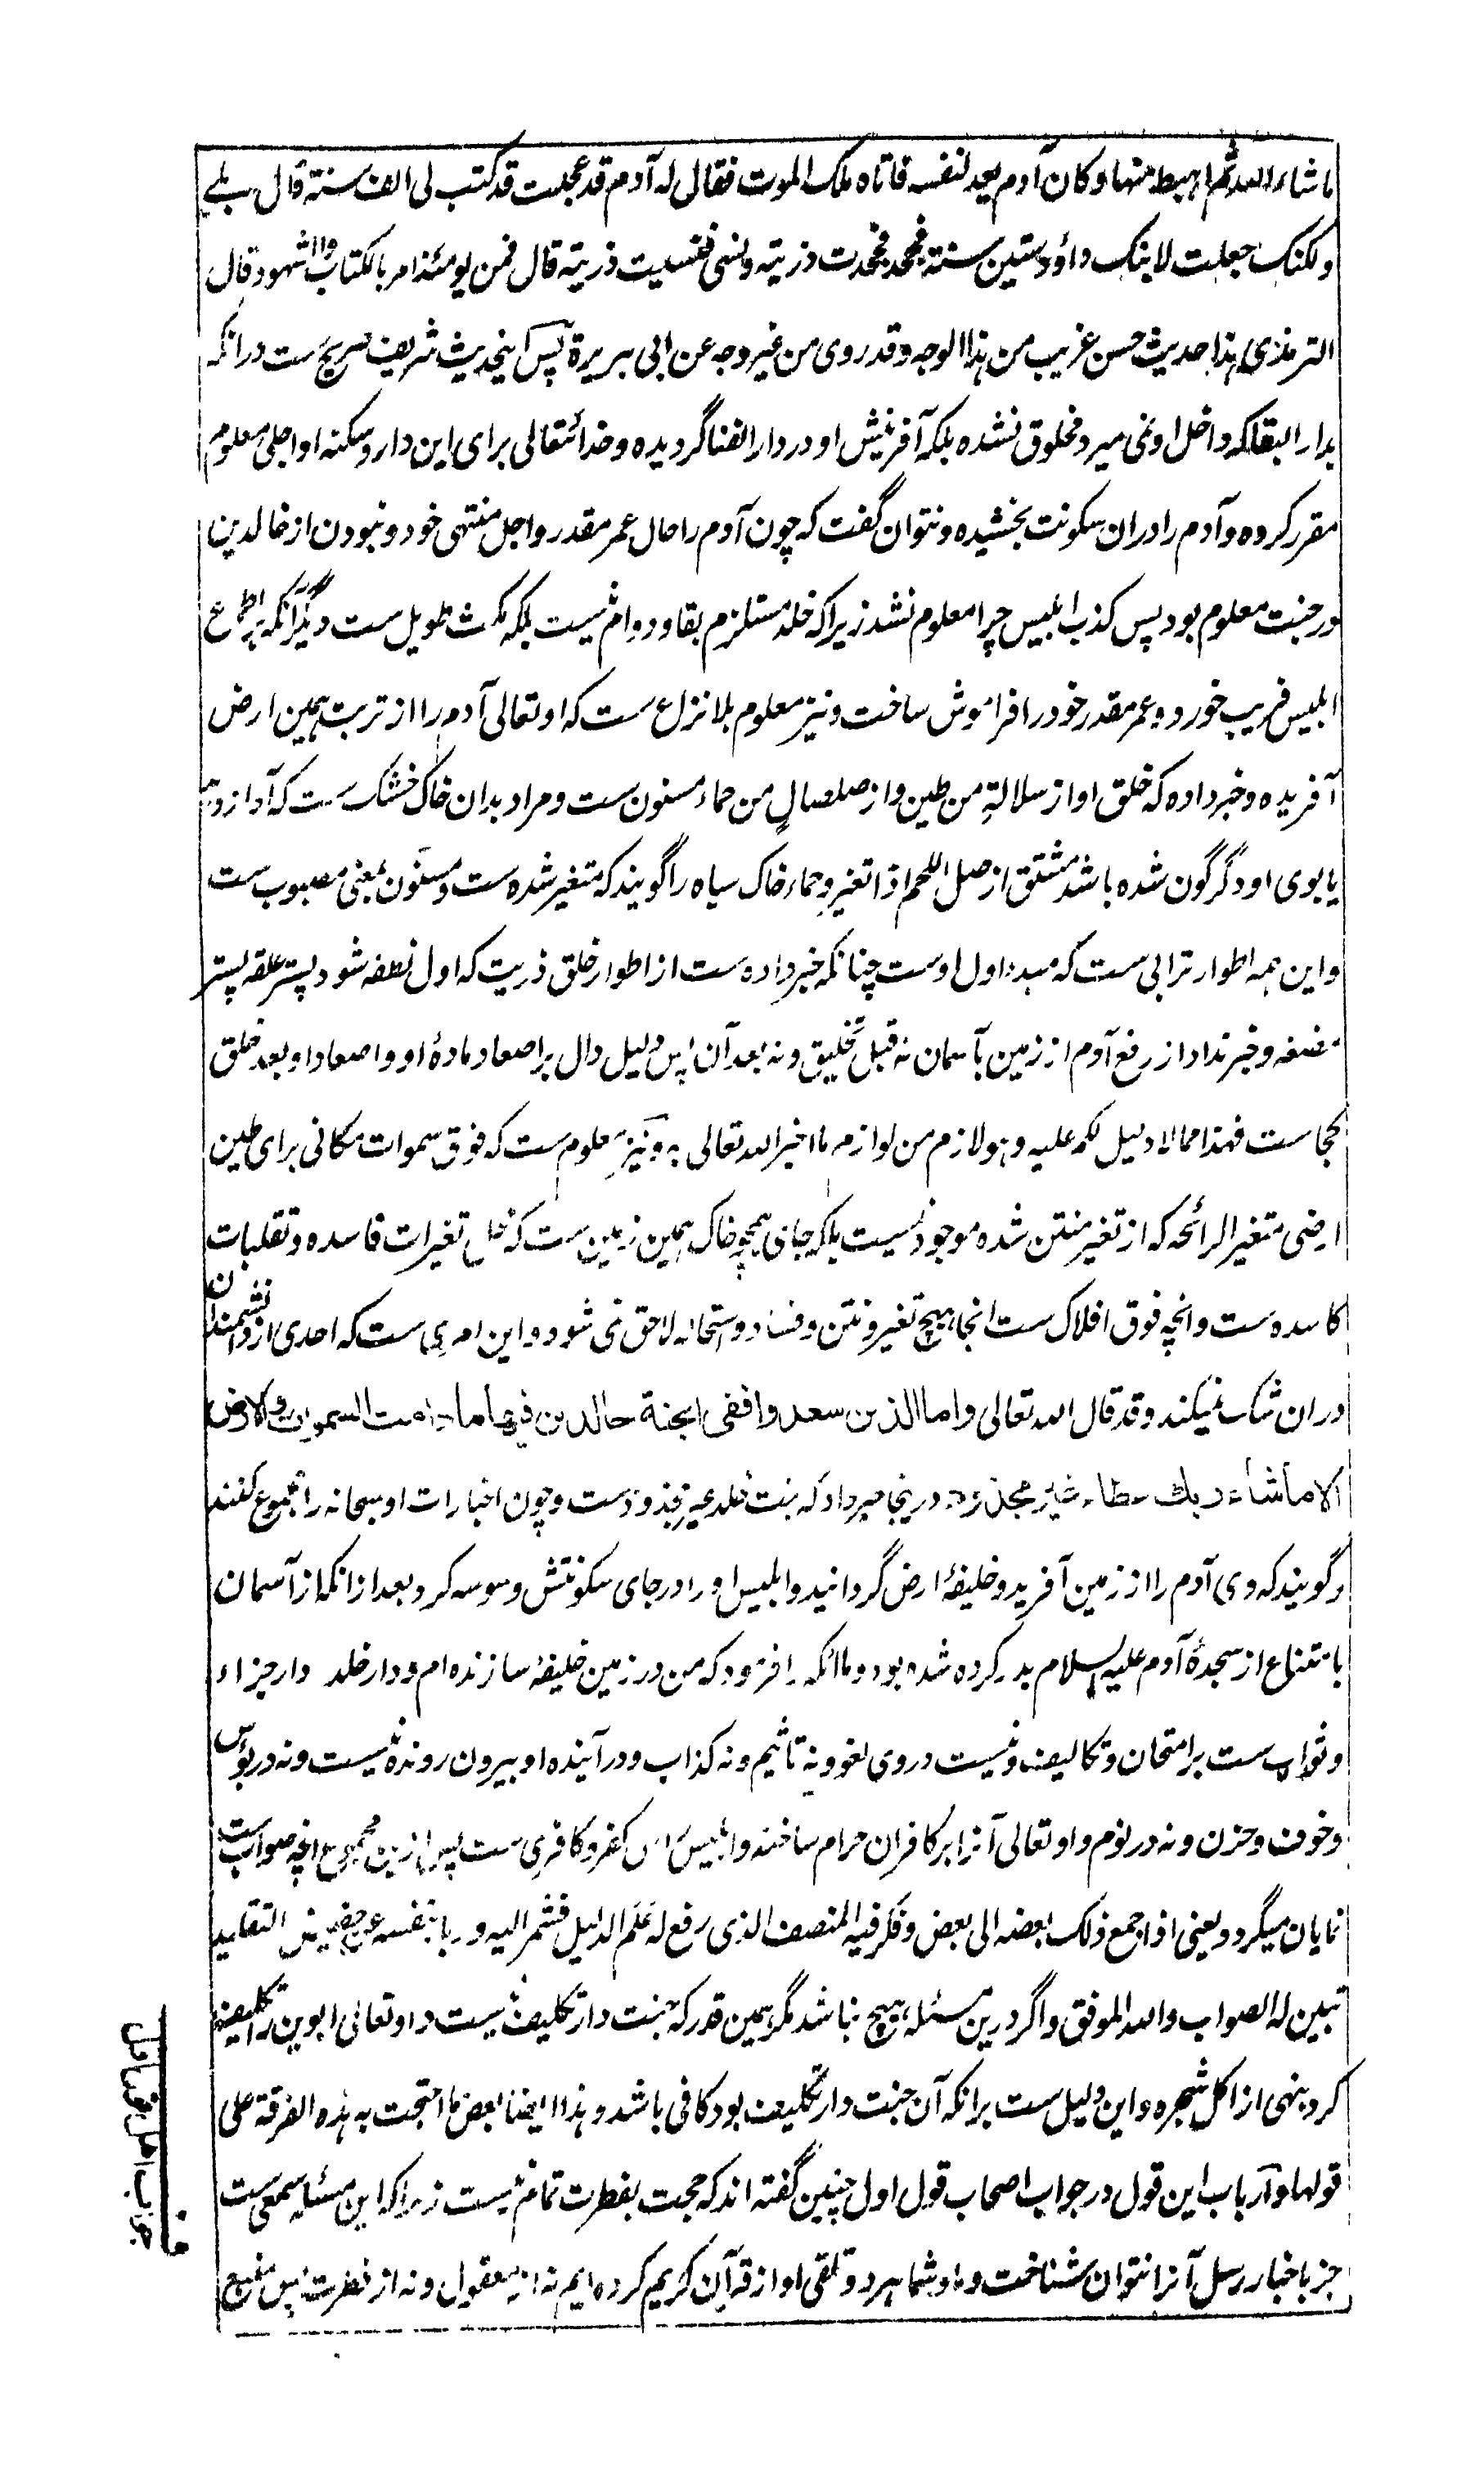 ما شاء الله ثم اهبط منها وكان آدم يعد لنفسه فاتاه ملك الموت فقال له آدم قد عجلت قد كتب لی الف سنة قال بلے
ولكنك جعلت لابنك داؤد ستين سنة فجحد فجحدت ذريته ونسی فنسيت ذريته قال فمن يومئذ امر بالكتاب والشهود قال
الترمذی هذا حديث حسن غريب من هذا الوجه وقد روی من غير وجه عن ابی هريرة پس اینحدیث شریف صریح ست در انکه
بدار البقا که داخل او نمی میرد مخلوق نشده بلکه آفرینش او در دار الفنا گردیده و خدائتعالی برای این دار و سکنه او اجلی معلوم
مقرر کرده و آدم را دران سکونت بخشیده و نتوان گفت که چون آدم را حال عمر مقدر و اجل منتهی خود و نبودن از خالدین
در جنت معلوم بود پس کذب ابلیس چرا معلوم نشد زیرا که خلد مستلزم بقا و دوام نیست بلکه مکث طویل ست دیگر آنکه بر اطماع
ابلیس فریب خورد و عمر مقدر خود را فراموش ساخت و نیز معلوم بلا نزاع ست که او تعالی آدم را از تربت همین ارض
آفریده و خبر داده که خلق او از سلالة من طین و از صلصال من حماء مسنون ست و مراد بدان خاک خشک ست که آواز دهد
یا بوی او دگرگون شده باشد مشتق از صل اللحم اذا تغیر و حماء خاک سیاه را گویند که متغیر شده ست و مسنون بمعنی مصبوب ست
و این همه اطوار ترابی ست که مبدء اول اوست چنانکه خبر داده ست از اطوار خلق ذریت که اول نطفه شود پستر علقه پستر
مضغه و خبر نداد از رفع آدم از زمین بآسمان نه قبل تخلیق و نه بعد آن پس دلیل دال بر اصعاد مادهٔ او و اصعاد او بعد خلق
کجاست فهذا مما لا دلیل لکم علیه و هو لازم من لوازم ما اخبر الله تعالی به و نیز معلوم ست که فوق سموات مکانی برای طین
ارضی متغیر الرائحه که از تغیر منتن شده موجود نیست بلکه جای همچو خاک همین زمین ست که محل تغیرات فاسده و تقلبات
کاسده ست و انچه فوق افلاک ست انجا هیچ تغیر و نتن و فساد و استحاله لاحق نمی شود و این امری ست که احدی از دانشمندان
دران شک نمیکند و قد قال الله تعالی واما الذين سعدوا ففی الجنة خالدين فيها ما دامت السموات والارض
الا ما شاء ربك عطاء غير مجذوذ درینجا خبر داد که جنت خلد غیر مجذوذ ست و چون اخبارات او سبحانه را مجموع کنند
و گویند که وی آدم را از زمین آفرید و خلیفهٔ ارض گردانید و ابلیس او را در جای سکونتش وسوسه کرد بعد ازانکه از آسمان
بامتناع از سجدهٔ آدم علیه السلام بدر کرده شده بود و ملائکه را فرمود که من در زمین خلیفهٔ سازنده ام و دار خلد دار جزاء
و ثواب ست بر امتحان و تکالیف و نیست در وی لغو و نه تاثیم و نه کذاب و در آینده او بیرون رونده نیست و نه در بؤس
و خوف و حزن و نه در نوم و او تعالی آنرا بر کافران حرام ساخته و ابلیس راس کفر و کافری ست پس ازین مجموع انچه صواب ست
نمایان میگردد یعنی اذا جمع ذلک بعضه الی بعض و فکر فیه المنصف الذی رفع له علم الدلیل فشمر الیه و ربا بنفسه عن حضیض التقلید
تبین له الصواب والله الموفق و اگر درین مسئله هیچ نباشد مگر همین قدر که جنت دار تکلیف نیست و او تعالی ابوین را تکلیف
کرد بنهی از اکل شجره و این دلیل ست برانکه آن جنت دار تکلیف بود کافی باشد و هذا ایضا بعض ما احتجت به هذه الفرقة علی
قولها و ارباب این قول در جواب اصحاب قول اول چنین گفته اند که حجت بفطرت تمام نیست زیرا که این مسئله سمعی ست
جز باخبار رسل آنرا نتوان شناخت و ما و شما هر دو تلقی او از قرآن کریم کرده ایم نه از معقول و نه از فطرت پس متبع
جواب